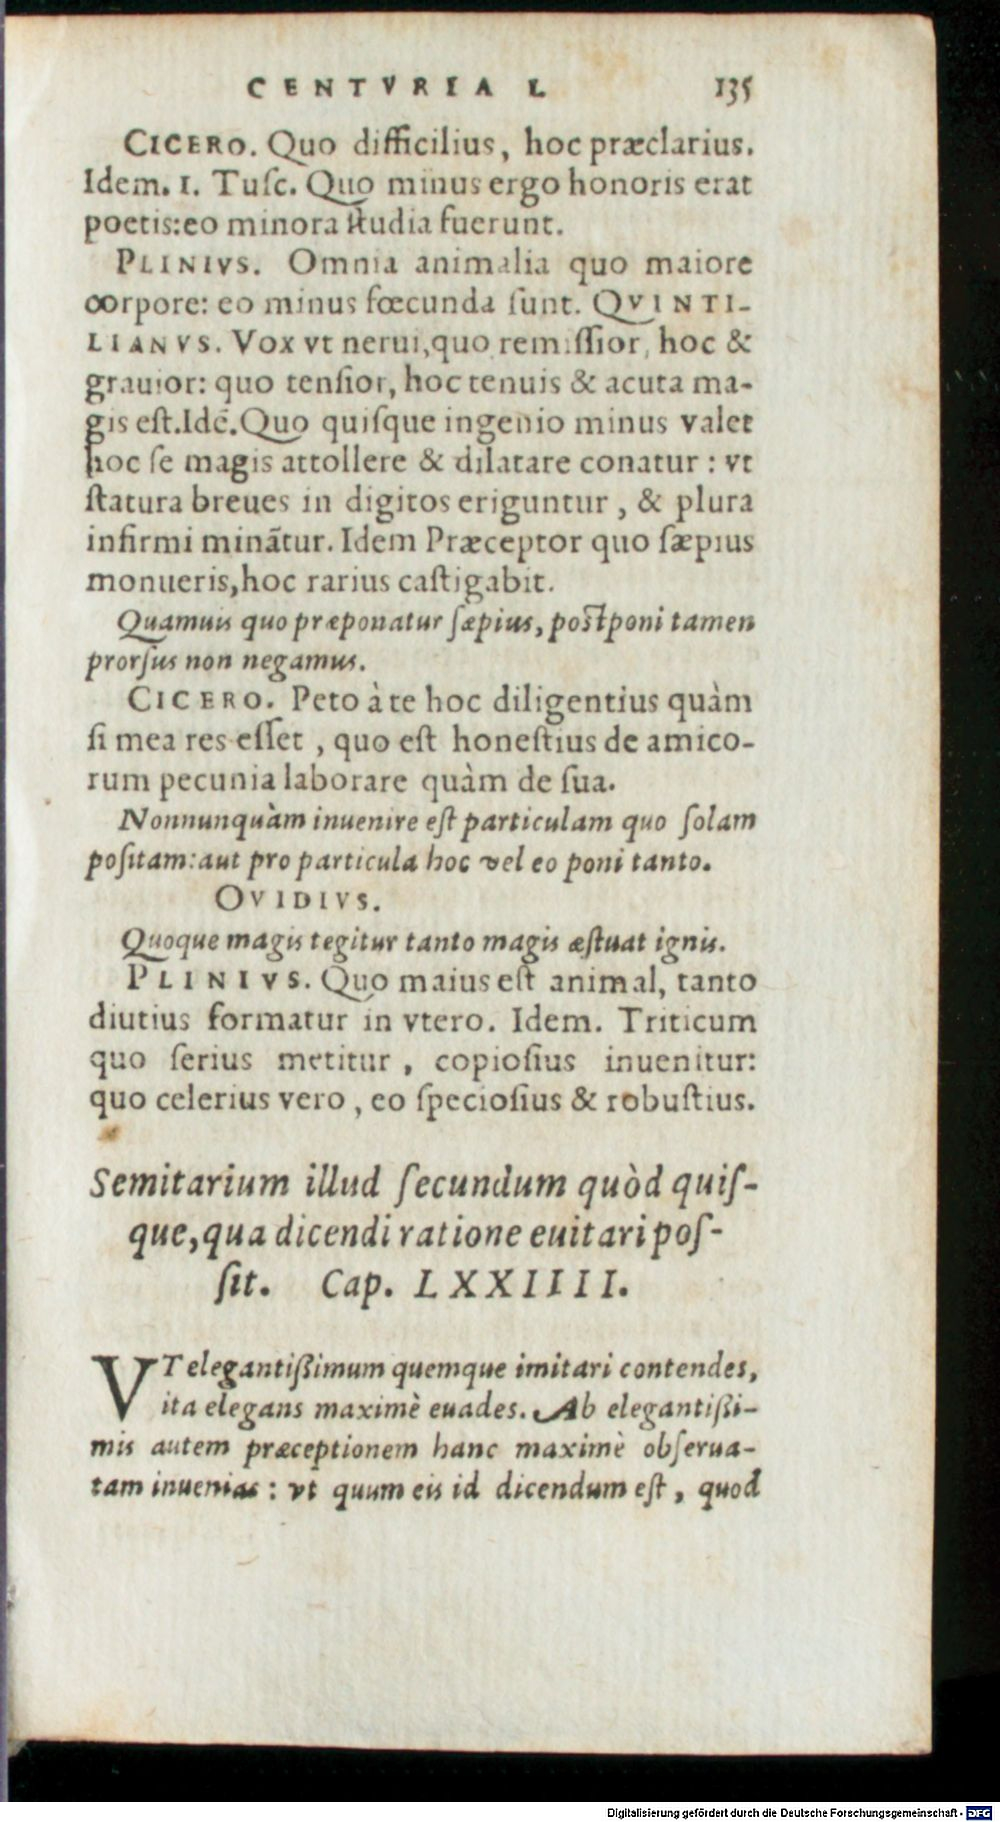 CENTVRIA I. 135
CICERO. Quo difficilius, hoc præclarius.
Idem. 1. Tuſc. Quo minus ergo honoris erat
poetis:eo minora ſtudia fuerunt.
PLINIVS. Omnia animalia quo maiore
corpore: eo minus fœcunda ſunt. QVINTI-
LIANVS. Vox vt nerui,quo remiſſior, hoc &
grauior: quo tenſior, hoc tenuis & acuta ma-
gis eſt.Idē.Quo quiſque ingenio minus valet
hoc ſe magis attollere & dilatare conatur : vt
ſtatura breues in digitos eriguntur , & plura
infirmi minātur. Idem Præceptor quo ſæpius
monueris,hoc rarius caſtigabit.
Quamuis quo præponatur ſæpius, poſtponi tamen
prorſus non negamus.
CICERO. Peto à te hoc diligentius quàm
ſi mea res eſſet , quo eſt honeſtius de amico-
rum pecunia laborare quàm de ſua.
Nonnunquàm inuenire eſt particulam quo ſolam
poſitam:aut pro particula hoc vel eo poni tanto.
OVIDIVS.
Quoque magis tegitur tanto magis æſtuat ignis.
PLINIVS. Quo maius eſt animal, tanto
diutius formatur in vtero. Idem. Triticum
quo ſerius metitur , copioſius inuenitur:
quo celerius vero , eo ſpecioſius & robuſtius.
Semitarium illud ſecundum quòd quiſ-
que,qua dicendi ratione euitari poſ-
ſit. Cap. LXXIIII.
VT elegantiſſimum quemque imitari contendes,
ita elegans maximè euades. Ab elegantiſſi-
mis autem præceptionem hanc maximè obſerua-
tam inuenias : vt quum eis id dicendum eſt , quod
Digitalisierung gefördert durch die Deutsche Forschungsgemeinschaft - DFG